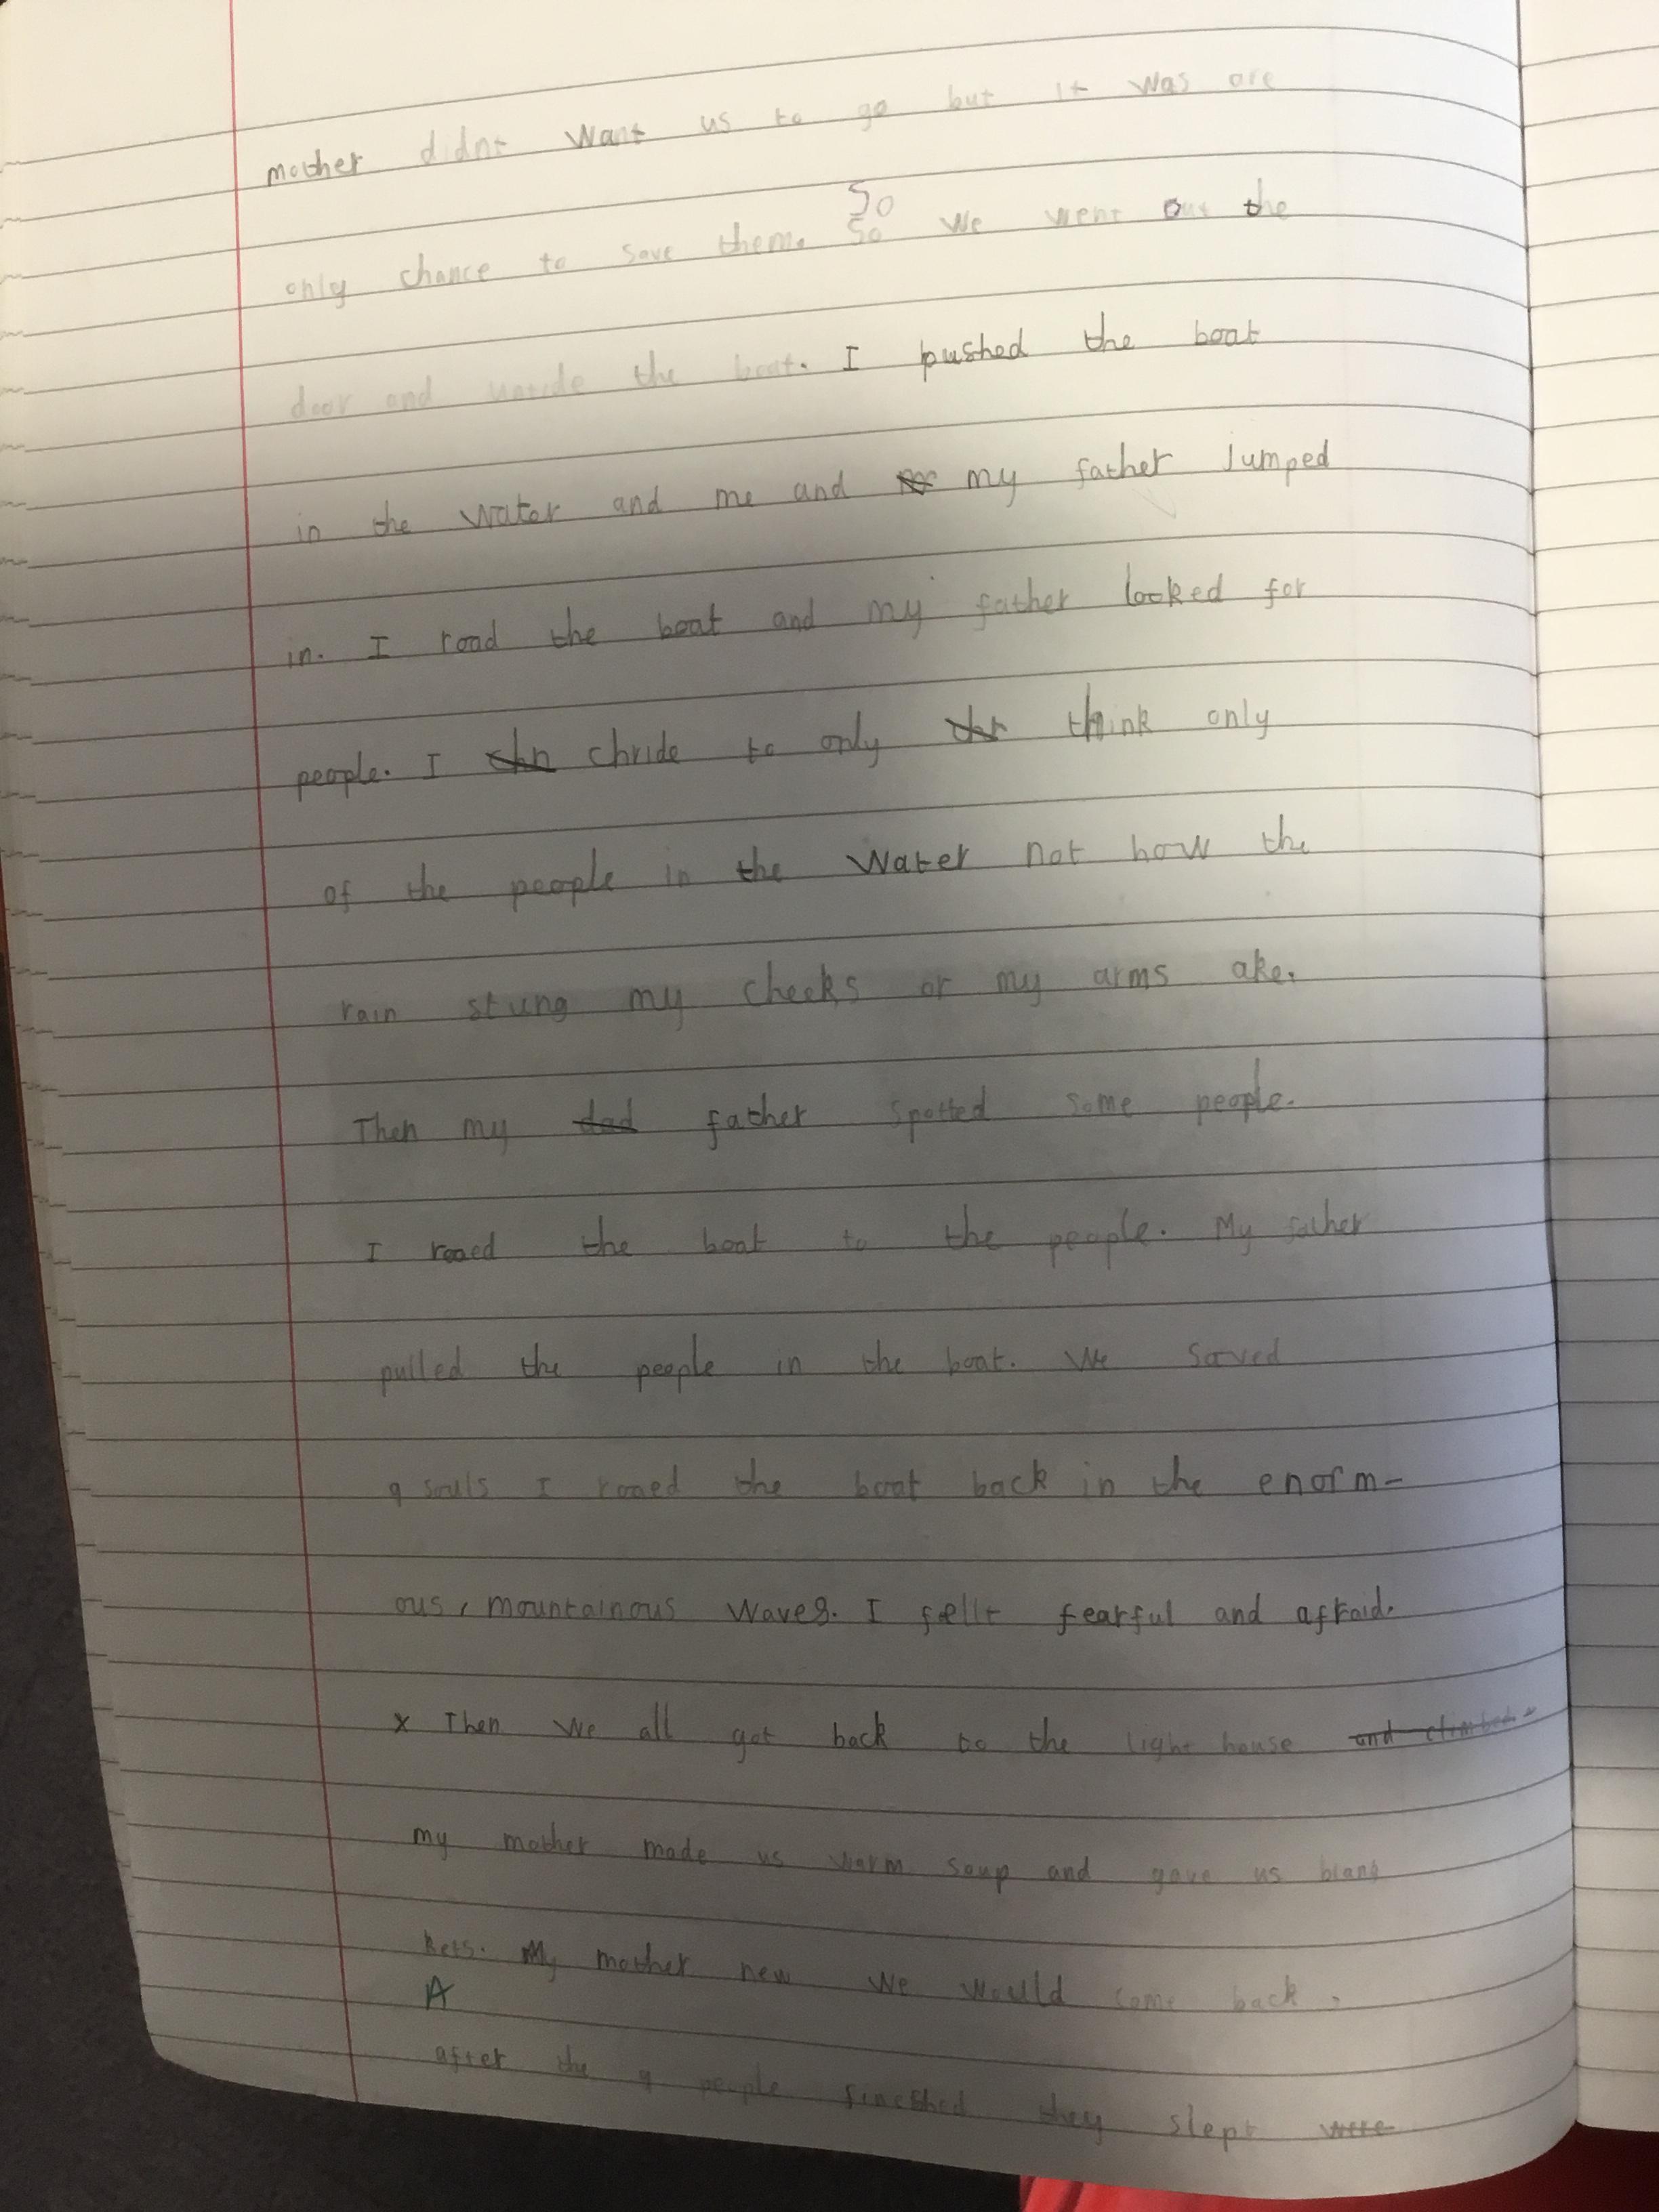 mother didnt want us to go but it was are
So
only chance to save them. So we went out the
door and untide the boat. I pushed the boat
in the water and me and my father jumped
in. I road the boat and my father looked for
people. I chride to only think only
of the people in the water not how the
rain stung my cheeks or my arms ake.
Then my dad father spotted some people.
I roaed the boat to the people. My father
pulled the people in the boat. We saved
9 souls I roaed the boat back in the enorm-
ous, mountainous waves. I fellt fearful and afraid.
x Then we all got back to the light house and climbed
my mother made us warm soup and gave us blank
kets. My mother new we would come back.
A
after the 9 people fineshed they slept were